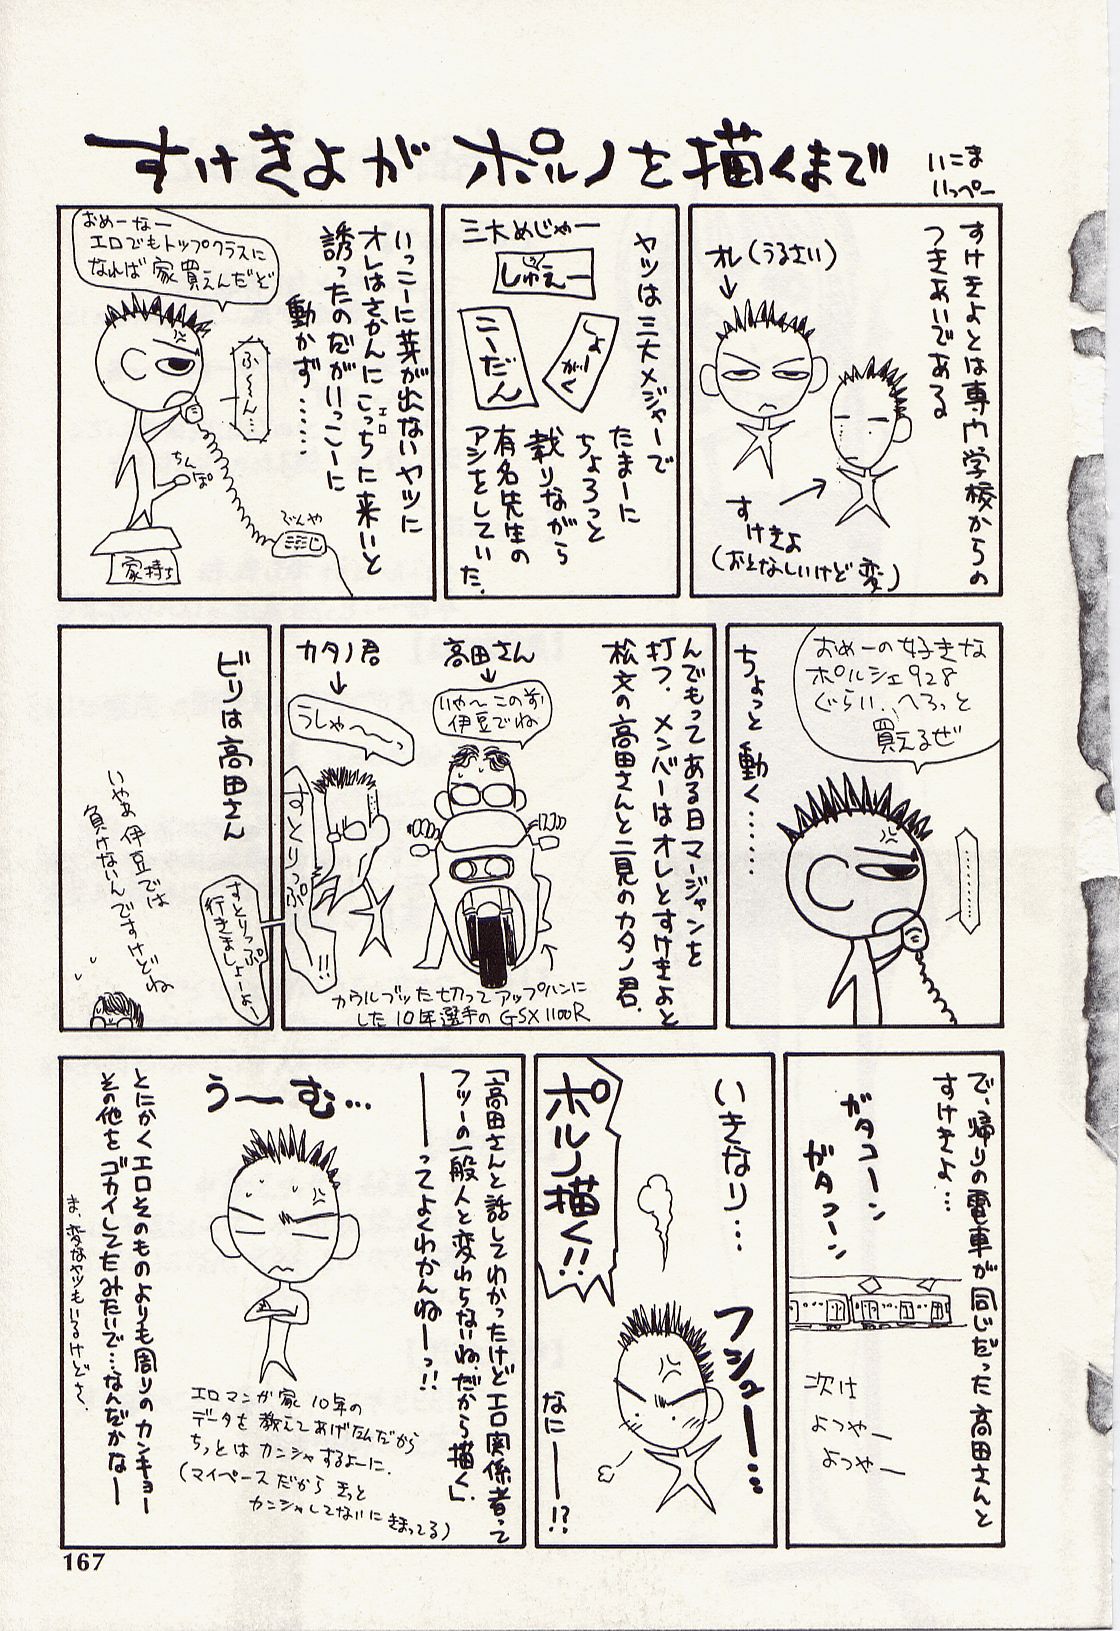 すけきよが ポルノを描くまで
いこま
いっぺー
すけきよとは専門学校からの
つきあいである
オレ(うるさい)
すけきよ
(おとなしいけど変)
ヤツは三大メジャーで
たまーに
ちょろっと
載りながら
有名先生の
アシをしていた.
三大めじゃー
しゅえー
しょーがく
こーだん
いっこーに芽が出ないヤツに
オレはさかんにこっちに来いと
エロ
誘ったのだがいっこーに
動かず……
おめーなー
エロでもトップクラスに
なれば家買えんだど
ふ〜〜ん…
ちんぽ
でんや
家持ち
おめーの好きな
ポルシェ928
ぐらい、へろっと
買えるぜ
ちょっと動く……
………
んでもってある日マージャンを
打つ.メンバーはオレとすけきよと
松文の高田さんと二見のカタノ君.
高田さん
いや〜このまえ
伊豆でね
カタノ君
うしゃ〜〜っ
すとりっぷ——!!
カウルブッた切ってアップハンに
した10年選手のGSX1100R
ビリは高田さん
いやぁ伊豆では
負けないんですけどね
すとりっぷ
行きましょーよー
で、帰りの電車が同じだった高田さんと
すけきよ…
ガタコーン
ガタコーン
次は
よつやー
よつやー
いきなり…
フシューー…
ポルノ描く!!
なにーー!?
「高田さんと話してわかったけどエロ関係者って
フツーの一般人と変わらないね.だから描く」.
——ってよくわかんねーーっ!!
うーむ…
エロマンガ家10年の
データを教えてあげたんだから
ちっとはカンシャするよーに.
(マイペースだからきっと
カンシャしてないにきまってる)
とにかくエロそのものよりも周りのカンキョー
その他をゴカイしてたみたいで…なんだかなー
ま、変なヤツもいるけどさ〜.
167